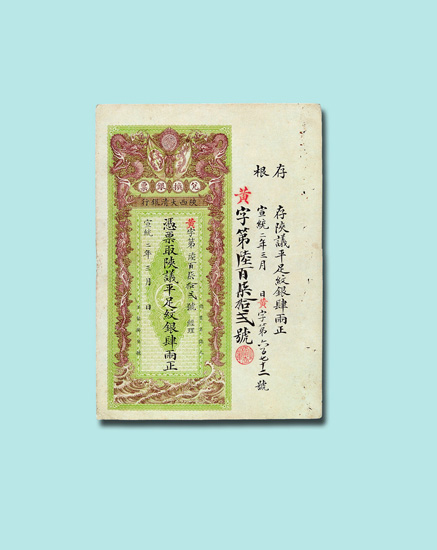 存根
存陝議平足紋銀肆兩正
宣統二年三月 日黃字第六百七十二號
黃字第陸百柒拾弍號
兌換銀票
陝西大清銀行
黃字第陸百柒拾弍號 經理
憑票取陝議平足紋銀肆兩正
宣統二年三月 日